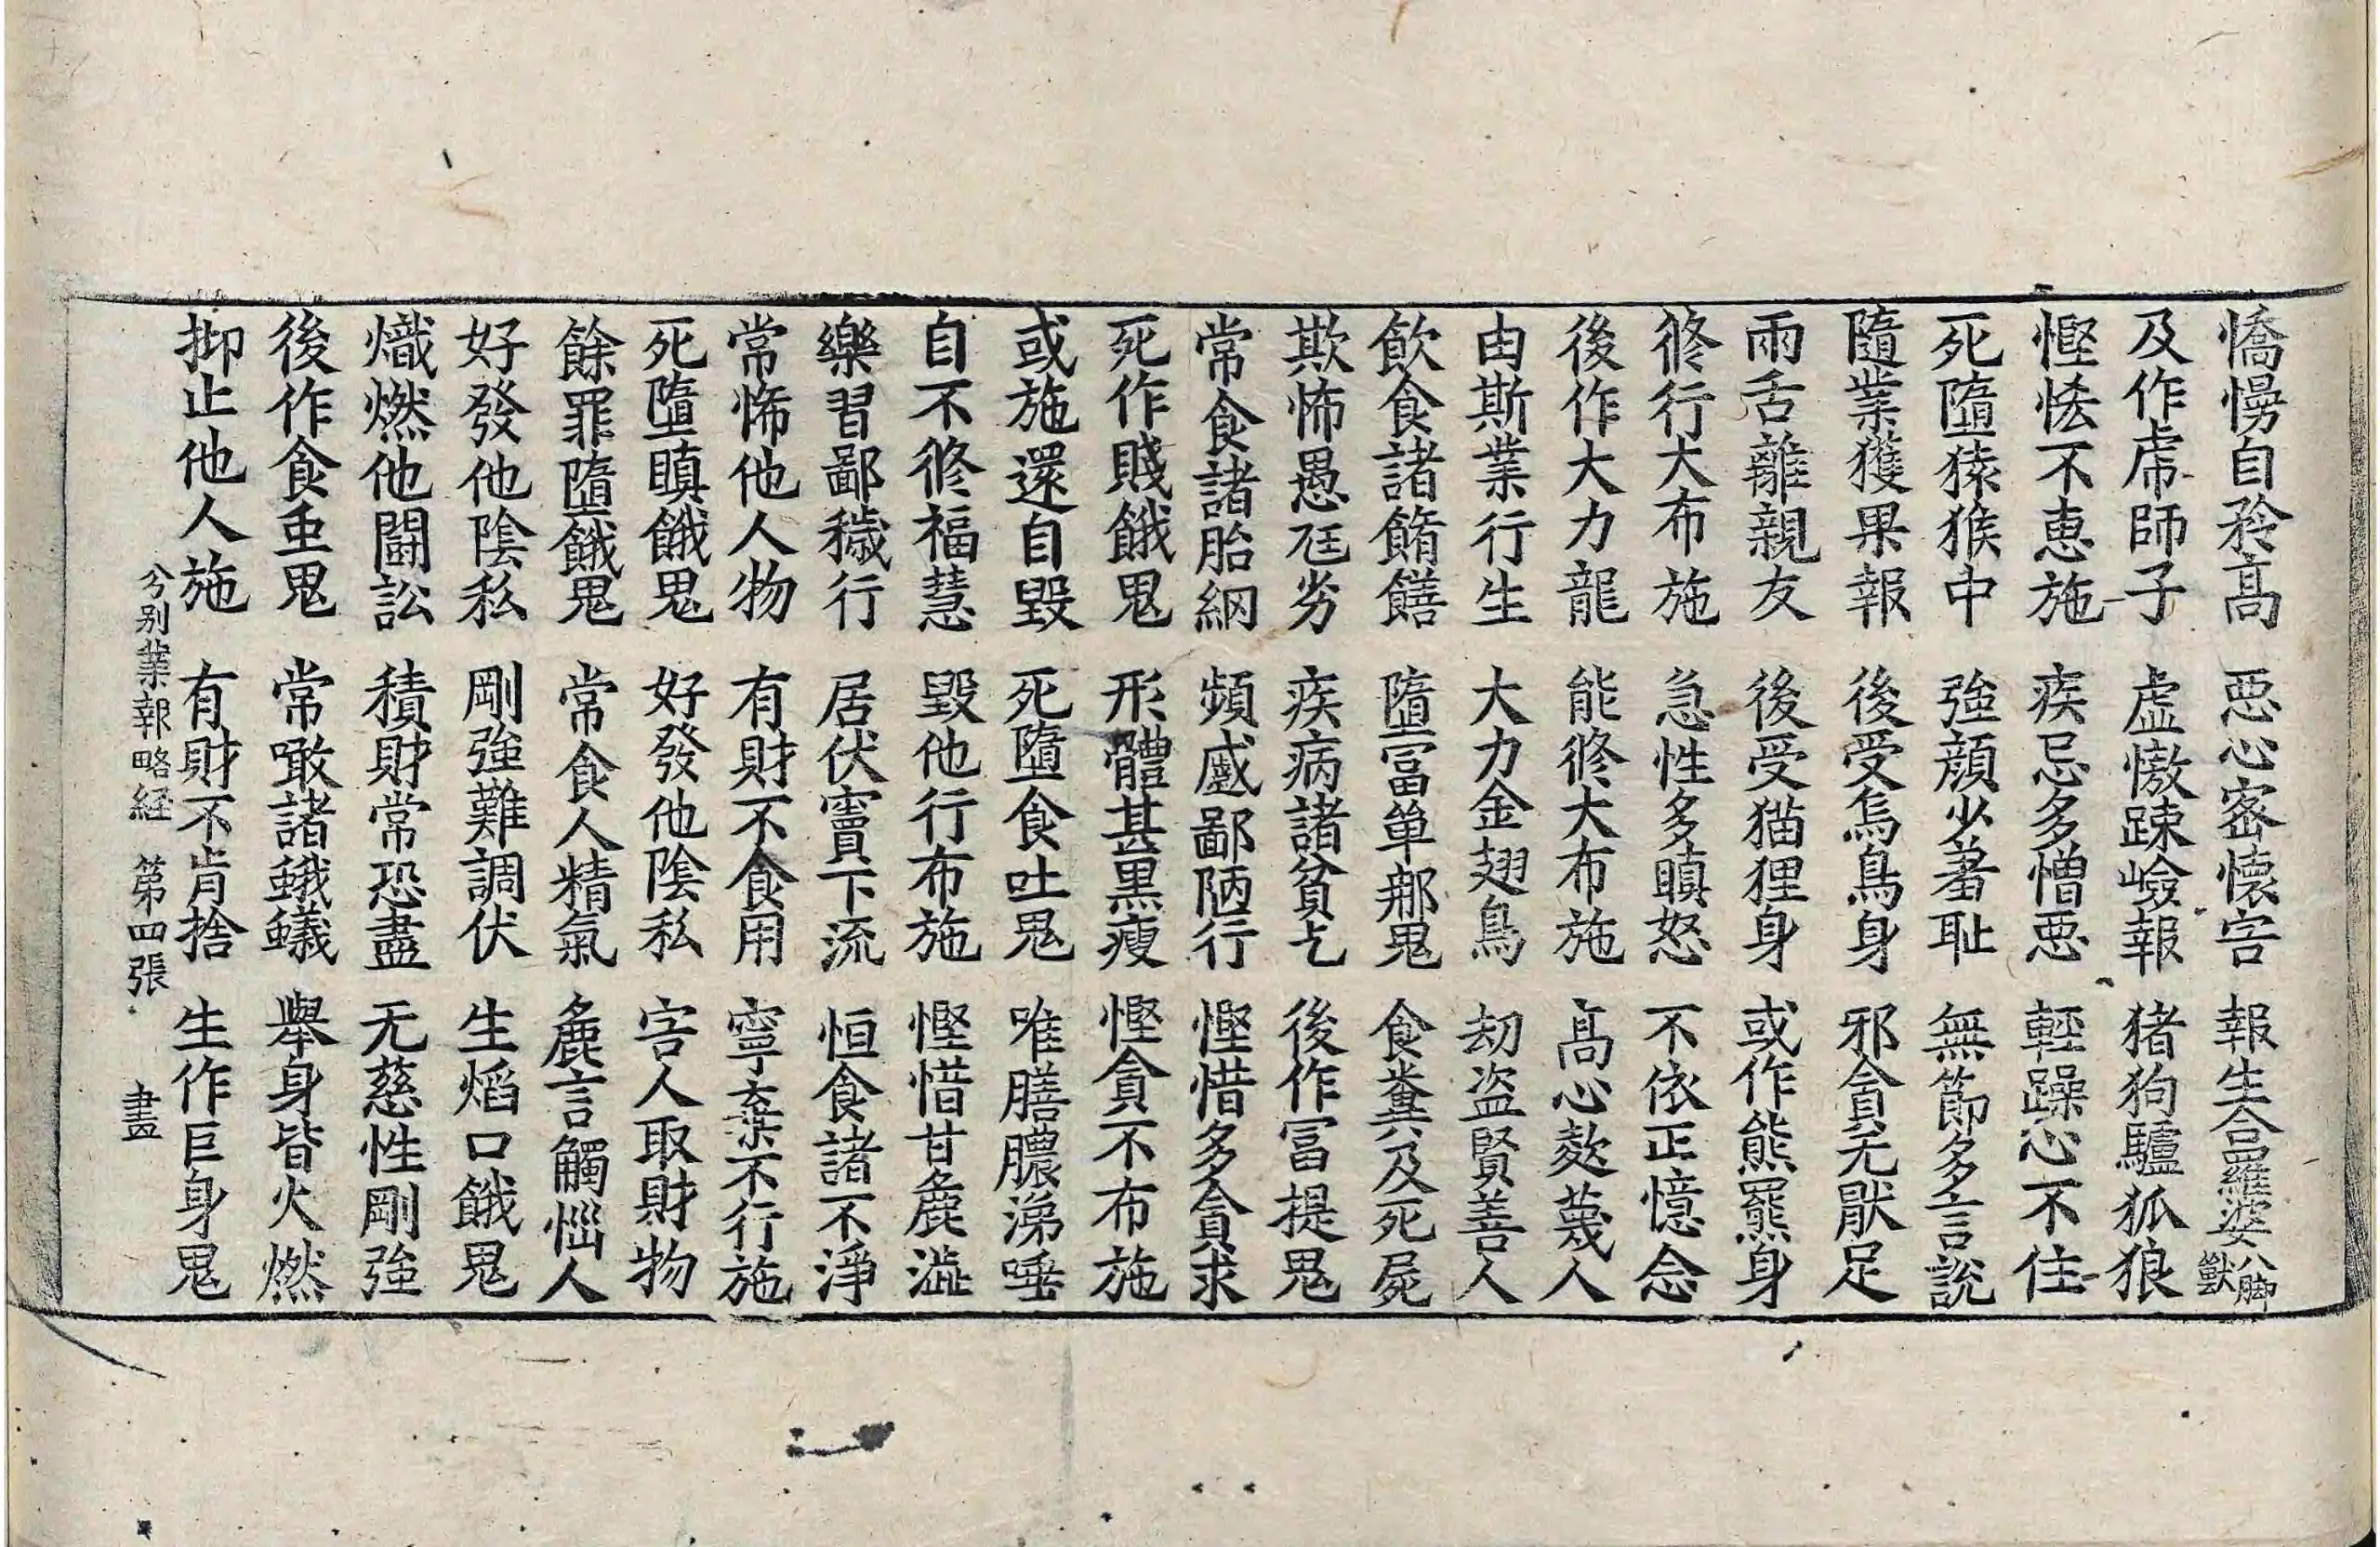 憍慢自矜高　惡心密懷害　報生合羅婆八脚獸
及作虎師子　虛憿踈嶮報　猪狗驢狐狼
慳悋不惠施　疾忌多憎惡　輕躁心不住
死墮猿猴中　強顔少羞耻　無節多言說
隨業獲果報　後受烏鳥身　邪貪无猒足
兩舌離親友　後受猫狸身　或作熊羆身
修行大布施　急性多瞋怒　不依正憶念
後作大力龍　能修大布施　高心欺蔑人
由斯業行生　大力金翅鳥　劫盜賢善人
飲食諸餚饍　墮冨單那鬼　食糞及死屍
欺怖愚尫劣　疾病諸貧乞　後作冨提鬼
常食諸胎網　頻慼鄙陋行　慳惜多貪求
死作賤餓鬼　形體甚黑瘦　慳貪不布施
或施還自毀　死墮食吐鬼　唯膳膿涕唾
自不修福慧　毀他行布施　慳惜甘麁澁
樂習鄙穢行　居伏竇下流　恒食諸不淨
常怖他人物　有財不食用　寧棄不行施
死墮瞋餓鬼　好發他陰私　害人取財物
餘罪墮餓鬼　常食人精氣　麁言觸惱人
好發他陰私　剛強難調伏　生焰口餓鬼
熾燃他鬪訟　積財常恐盡　无慈性剛強
後作食虫鬼　常噉諸蛾蟻　舉身皆火燃
抑止他人施　有財不肯捨　生作巨身鬼
分别業報略経　第四張　晝